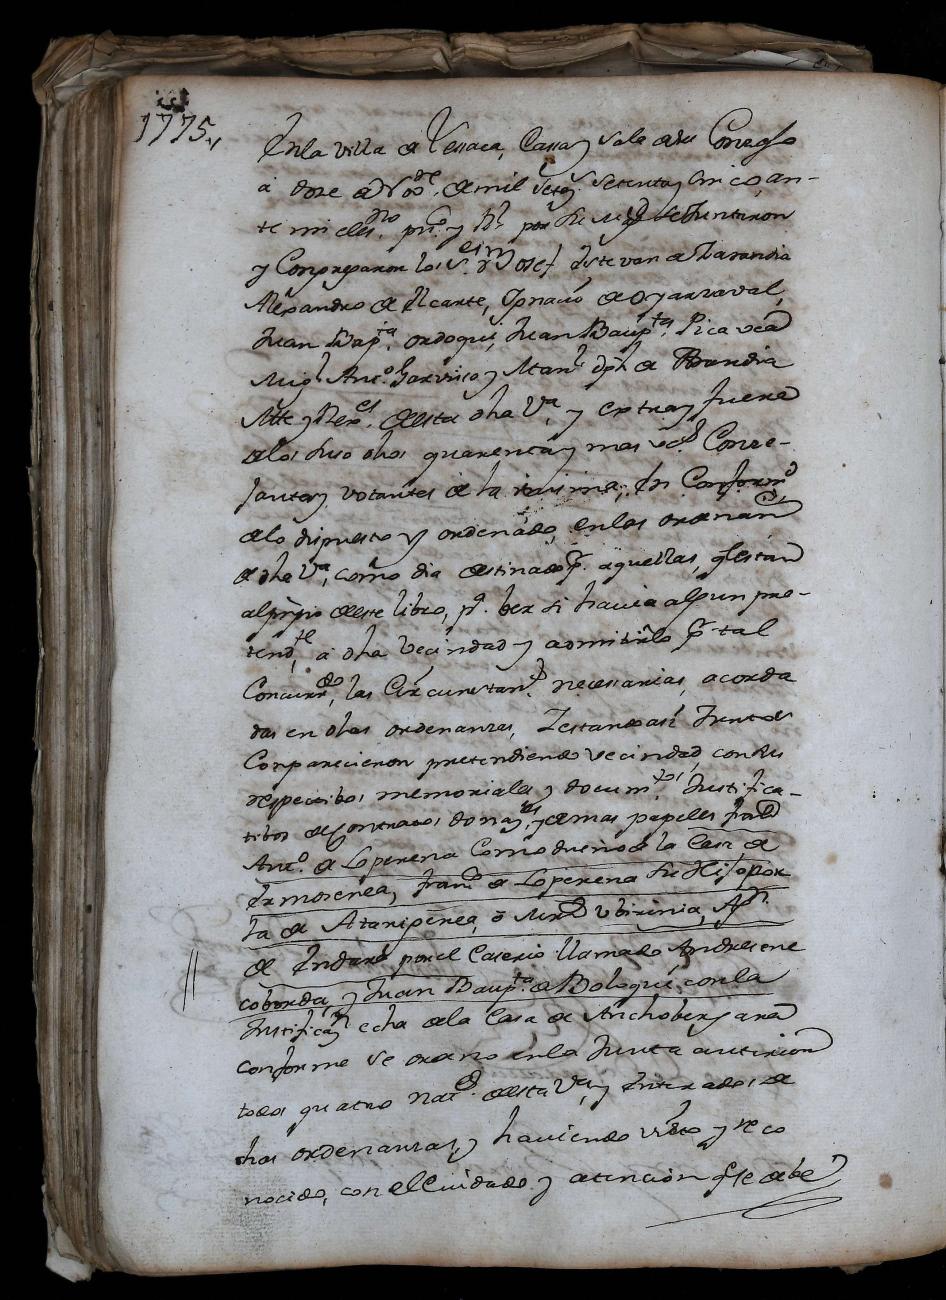 1775.
En la villa de Lesaca, Cassa y Sala de su Conzejo
á doze de Nov.re de mil setez.s setenta y cinco, an-
te mi el ess.no pu.co y por su Mag.d se Juntaron
y Congregaron los S.res D.n Josef Estevan de Larandia
Alexandro de Ricarte, Ygnacio de Oyarzaval,
Juan Bap.ta Ordoqui, Juan Baup.ta Picavea
Mig.l Ant.o Garvisso y Man.l Jph. de Alzandia
Alc.te y Rex.es de esta dha V.a, y entray fuera
de los suso dhos quarenta y mas vez.s Conze-
jantes y votantes de la misma; En Conform.d
de lo dispuesto y ordenado, en las ordenanz.s
de dha V.a, como dia destinado p.r aquellas, q.e estan
al prinpio de este libro, p.a ber si havia algun pre-
tend.te, á dha vecindad y admitirlo p.r tal
Concurr.do, las Circunstanz.s necessarias, acorda
das en dhas ordenanzas, Y estando asi Juntos
Conparecieron pretendiendo vecindad, con sus
respecttibos memoriales y docum.tos, Justifica-
tibos de Contratos donaz.les, y demas papeles Fran.co
Ant.o de Loperena Como dueño de la Casa de
Ermosenea, Fran.co de Loperena su Hijo por
la de Ataripenea, ó Mrñ Ubirinia, Ag.n
de Endara por el Caserio llamado Andresene
coborda, y Juan Baup.ta de Boloqui, con la
Justificaz.n echa de la Casa de Anchoberyarena
conforme se ordeno en la Junta antterior
todos quatro nat.s de esta V.a, y Enterados de
has ordenanzas, y haviendo visto y reco
nocido, con el Cuidado, y atencion q.e se debe